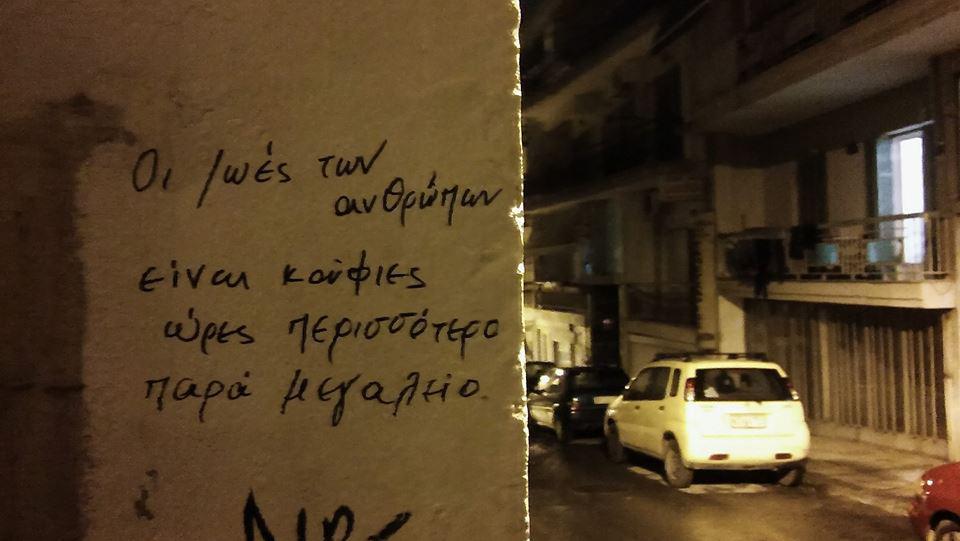 Οι ζωές των
ανθρώπων
είναι κούφιες
ώρες περισσότερο
παρά μεγαλείο.